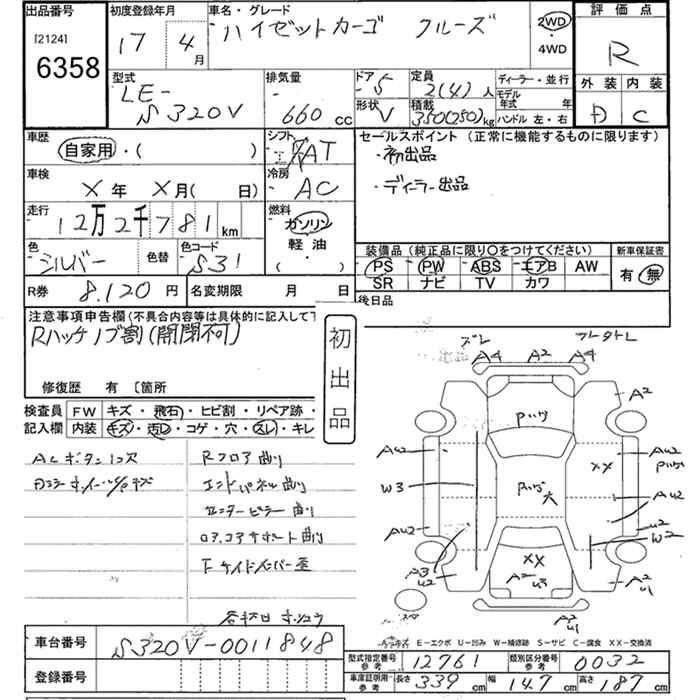 出品番号
[2124]
6358
初度登録年月
17年 4月
車名・グレード
ハイゼットカーゴ クルーズ
2WD
・
4WD
評価点
R
外装 内装
D C
型式
LE-
S320V
排気量
660 cc
ドア 5
形状 V
定員
2(4) 人
積載
350(250) kg
ディーラー・並行
モデル
年式 年
ハンドル 左・右
車歴
自家用・( )
シフト
AT
冷房
AC
車検
X 年 X 月( 日)
走行
12万2千781 km
燃料
ガソリン
軽油
( )
色
シルバー
色替
色コード
S31
R券 8.120 円
名変期限 月 日
セールスポイント (正常に機能するものに限ります)
・初出品
・ディーラー出品
装備品 (純正品に限り○をつけてください)
PS PW ABS エアB AW
SR ナビ TV カワ
新車保証書
有 無
後日品
注意事項申告欄(不具合内容等は具体的に記入して下
Rハッチノブ割(開閉不可)
修復歴 有 〔箇所
初出品
検査員 FW キズ・飛石・ヒビ割・リペア跡・
記入欄 内装 キズ・汚レ・コゲ・穴・スレ・キレ
ACボタンコス
Rフロア曲り
エンドパネル曲り
センターピラー曲り
ロアコアサポート曲り
下サイドメンバー歪
ズレ
A4 A2 A4
A2
Pハゲ
AU2
AU2
Pハゲ
XX
W3
Pハゲ
大
AU2
AU2
U2
W2
XX
A3
U2
A2
U3
A2
U1
A2
U1
E−エクボ U−凹み W−補修跡 S−サビ C−腐食 XX−交換済
車台番号 S320V-0011848
登録番号
型式指定番号
参考
12761
類別区分番号
参考
0032
車庫証明用
参考
長さ 339 cm 幅 147 cm 高さ 187 cm